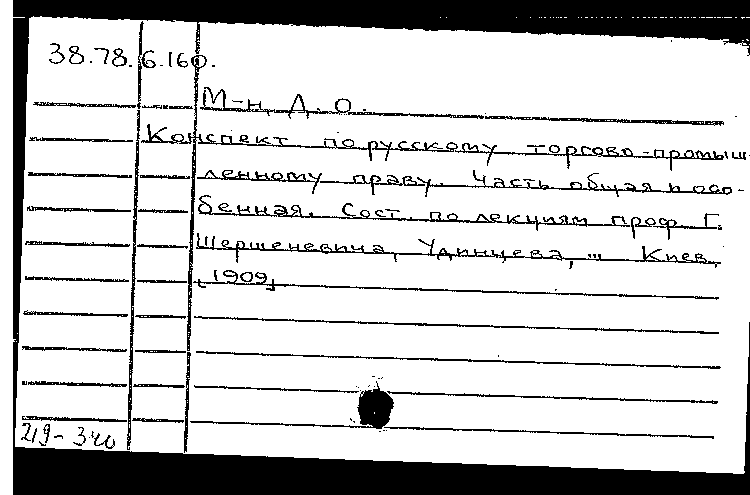 38.78.6.160.
М-н, Д. О.
Конспект по русскому торгово-промыш-
ленному праву. Часть общая и осо-
бенная. Сост. по лекциям проф. Г.
Шершеневича, Удинцева, ... Киев,
[1909]
219-340